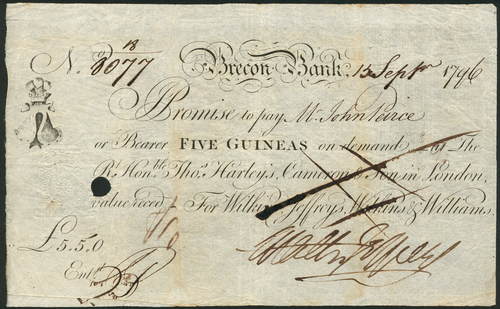 18
No. 8077 Brecon Bank. 15 Septr 1796
Promise to pay Mr. John Peirce
or Bearer FIVE GUINEAS on demand at The
Rt. Honble. Thos. Harley's, Cameron & Son in London,
value reced. For Wilkins, Jeffreys, Wilkins & Williams.
£5.5.0
Entd.